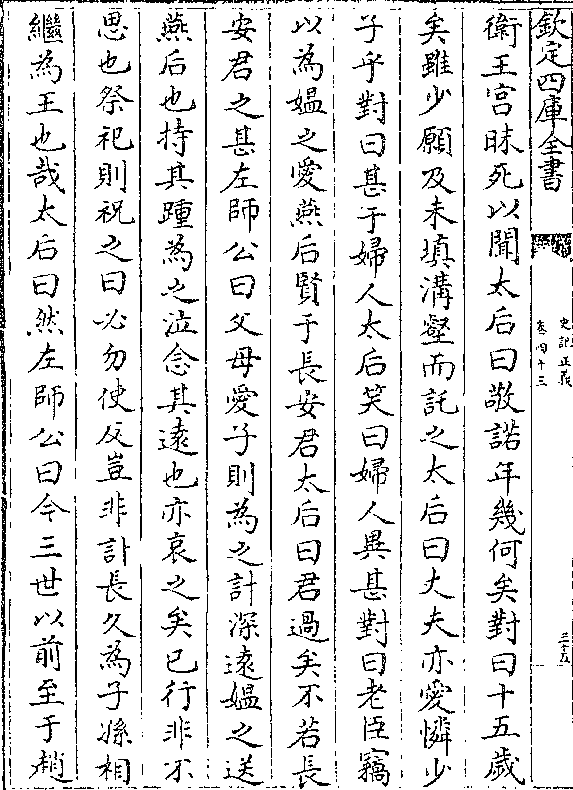 欽定四庫全書
史記正義
卷四十三
三十五
衛王宫昧死以聞太后曰敬諾年幾何矣對曰十五歲
矣雖少願及未填溝壑而託之太后曰丈夫亦愛憐少
子乎對曰甚于婦人太后笑曰婦人異甚對曰老臣竊
以為媪之愛燕后賢于長安君太后曰君過矣不若長
安君之甚左師公曰父母愛子則為之計深遠媪之送
燕后也持其踵為之泣念其遠也亦哀之矣已行非不
思也祭祀則祝之曰必勿使反豈非計長久為子孫相
繼為王也哉太后曰然左師公曰今三世以前至于趙